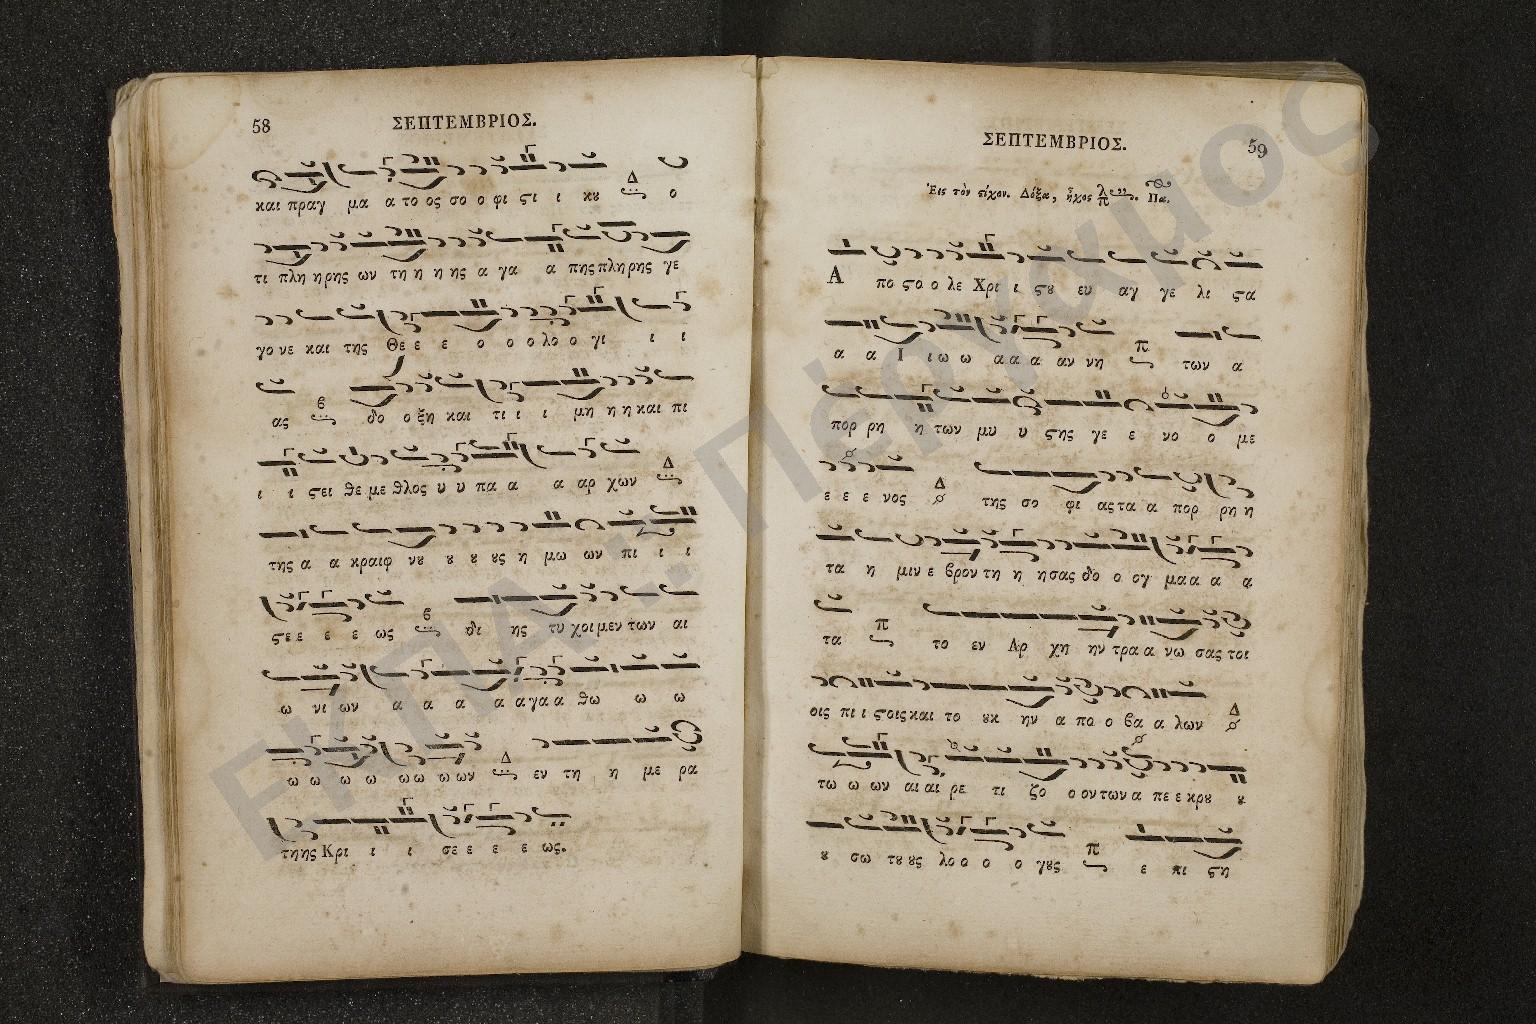 58
ΣΕΠΤΕΜΒΡΙΟΣ.
και πραγ μα α το ος σο ο φι ϛι ι κȣ Δ ο
τι πλη ηρης ων τη η η ης α γα α πης πληρης γε
γο νε και της Θε ε ε ο ο ο λο ο γι ι ι
ας ϐ δο ο ξη και τι ι ι μη η η και πι
ι ι ϛει θε με θλος υ υ πα α α αρ χων Δ
της α α κραιφ νȣ ȣ ȣ ȣ ȣς η μω ων πι ι ι
ϛε ε ε ε ε ως ϐ δι ης τυ χοι μεν των αι
ω νι ων α α α α α γα α θω ω ω
ω ω ω ω ω ω ω ων Δ εν τη η με ρα
τη ης Κρι ι ι σε ε ε ε ε ως.
ΣΕΠΤΕΜΒΡΙΟΣ.
59
Εἰς τὸν ϛίχον. Δόξα, ἦχος λ π Πα.
Α πο ϛο ο λε Χρι ι ϛȣ ευ αγ γε λι ϛα
α α Ι ι ω ω α α α αν νη π των α
πορ ρη η των μυ υ ϛης γε ε νο ο με
ε ε ε νος Δ της σο φι ας τα α πορ ρη η
τα η μιν ε ϐρον τη η η σας δο ο ογ μα α α α
τα π το εν Αρ χη ην τρα α νω σας τοι
οις πι ι ϛοις και το ȣκ ην α πο ο ϐα α λων Δ
τω ω ων αι αι ρε τι ζο ο ον των α πε ε κρȣ ȣ
ȣ σω τȣ ȣς λο ο ο ο γȣς π ε πι ϛη
ΕΚΠΑ: Πέργαμος